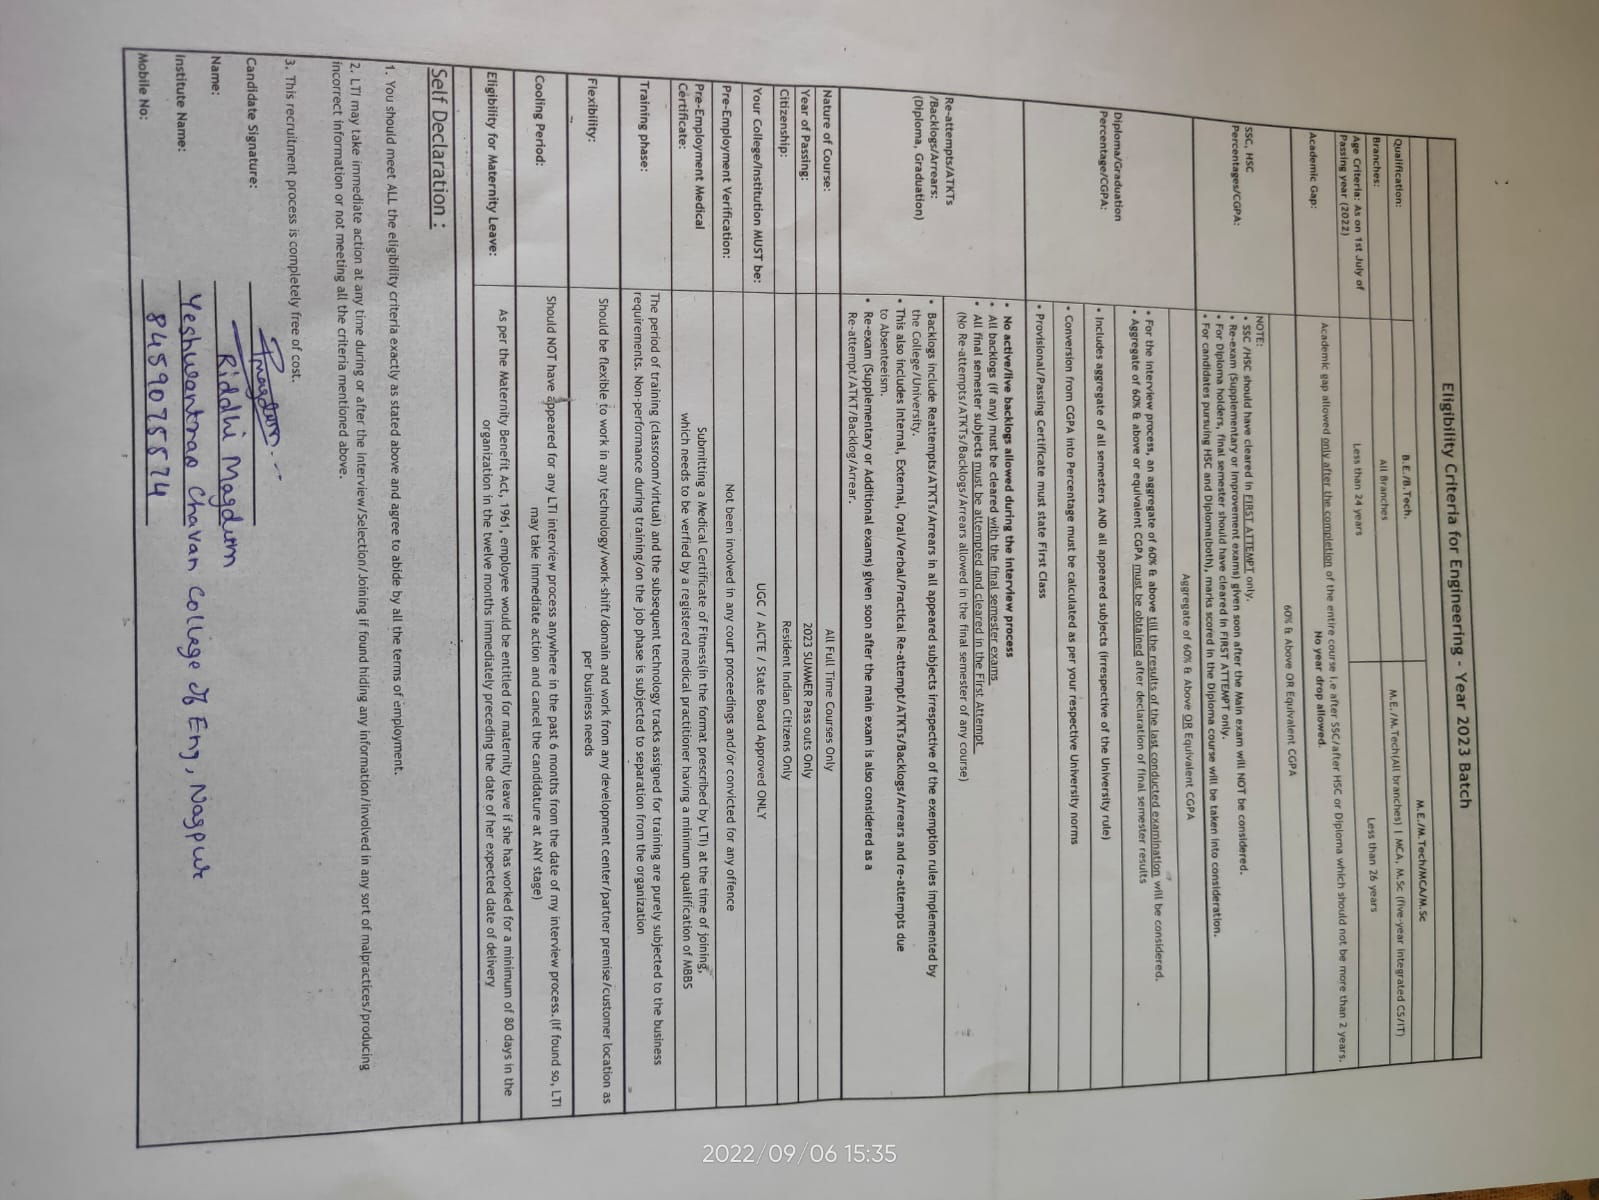 Eligibility Criteria for Engineering - Year 2023 Batch
B.E./B.Tech.
M.E./M.Tech/MCA/M.Sc
Qualification:
M.E./M.Tech(All branches) | MCA, M.Sc (five-year Integrated CS/IT)
Branches:
All Branches
Age Criteria: As on 1st July of
Passing year (2022)
Less than 24 years
Less than 26 years
Academic Gap:
Academic gap allowed only after the completion of the entire course i.e after SSC/after HSC or Diploma which should not be more than 2 years.
No year drop allowed.
60% & Above OR Equivalent CGPA
SSC, HSC
Percentages/CGPA:
NOTE:
• SSC /HSC should have cleared in FIRST ATTEMPT only.
• Re-exam (Supplementary or Improvement exams) given soon after the Main exam will NOT be considered.
• For Diploma holders, final semester should have cleared in FIRST ATTEMPT only.
• For candidates pursuing HSC and Diploma(both), marks scored in the Diploma course will be taken into consideration.
Diploma/Graduation
Percentage/CGPA:
Aggregate of 60% & Above OR Equivalent CGPA
• For the interview process, an aggregate of 60% & above till the results of the last conducted examination will be considered.
• Aggregate of 60% & above or equivalent CGPA must be obtained after declaration of final semester results
• Includes aggregate of all semesters AND all appeared subjects (irrespective of the University rule)
• Conversion from CGPA into Percentage must be calculated as per your respective University norms
• Provisional/Passing Certificate must state First Class
Re-attempts/ATKTs
/Backlogs/Arrears:
(Diploma, Graduation)
• No active/live backlogs allowed during the interview process
• All backlogs (if any) must be cleared with the final semester exams.
• All final semester subjects must be attempted and cleared in the First Attempt
(No Re-attempts/ATKTs/Backlogs/Arrears allowed in the final semester of any course)
• Backlogs include Reattempts/ATKTs/Arrears in all appeared subjects irrespective of the exemption rules implemented by
the College/University.
• This also includes Internal, External, Oral/Verbal/Practical Re-attempt/ATKTs/Backlogs/Arrears and re-attempts due
to Absenteeism.
• Re-exam (Supplementary or Additional exams) given soon after the main exam is also considered as a
Re-attempt/ATKT/Backlog/Arrear.
Nature of Course:
All Full Time Courses Only
Year of Passing:
2023 SUMMER Pass outs Only
Citizenship:
Resident Indian Citizens Only
Your College/Institution MUST be:
UGC / AICTE / State Board Approved ONLY
Pre-Employment Verification:
Not been involved in any court proceedings and/or convicted for any offence
Pre-Employment Medical
Certificate:
Submitting a Medical Certificate of Fitness(in the format prescribed by LTI) at the time of joining,
which needs to be verfied by a registered medical practitioner having a minimum qualification of MBBS
Training phase:
The period of training (classroom/virtual) and the subsequent technology tracks assigned for training are purely subjected to the business
requirements. Non-performance during training/on the job phase is subjected to separation from the organization
Flexibility:
Should be flexible to work in any technology/work-shift/domain and work from any development center/partner premise/customer location as
per business needs
Cooling Period:
Should NOT have appeared for any LTI interview process anywhere in the past 6 months from the date of my interview process.(If found so, LTI
may take immediate action and cancel the candidature at ANY stage)
Eligibility for Maternity Leave:
As per the Maternity Benefit Act, 1961, employee would be entitled for maternity leave if she has worked for a minimum of 80 days in the
organization in the twelve months immediately preceding the date of her expected date of delivery
Self Declaration :
1. You should meet ALL the eligibility criteria exactly as stated above and agree to abide by all the terms of employment.
2. LTI may take immediate action at any time during or after the Interview/Selection/Joining if found hiding any information/involved in any sort of malpractices/producing
incorrect information or not meeting all the criteria mentioned above.
3. This recruitment process is completely free of cost.
Candidate Signature:
Name: Riddhi Magdum
Institute Name: Yeshwantrao Chavan College of Eng, Nagpur
Mobile No: 8459075574
2022/09/06 15:35